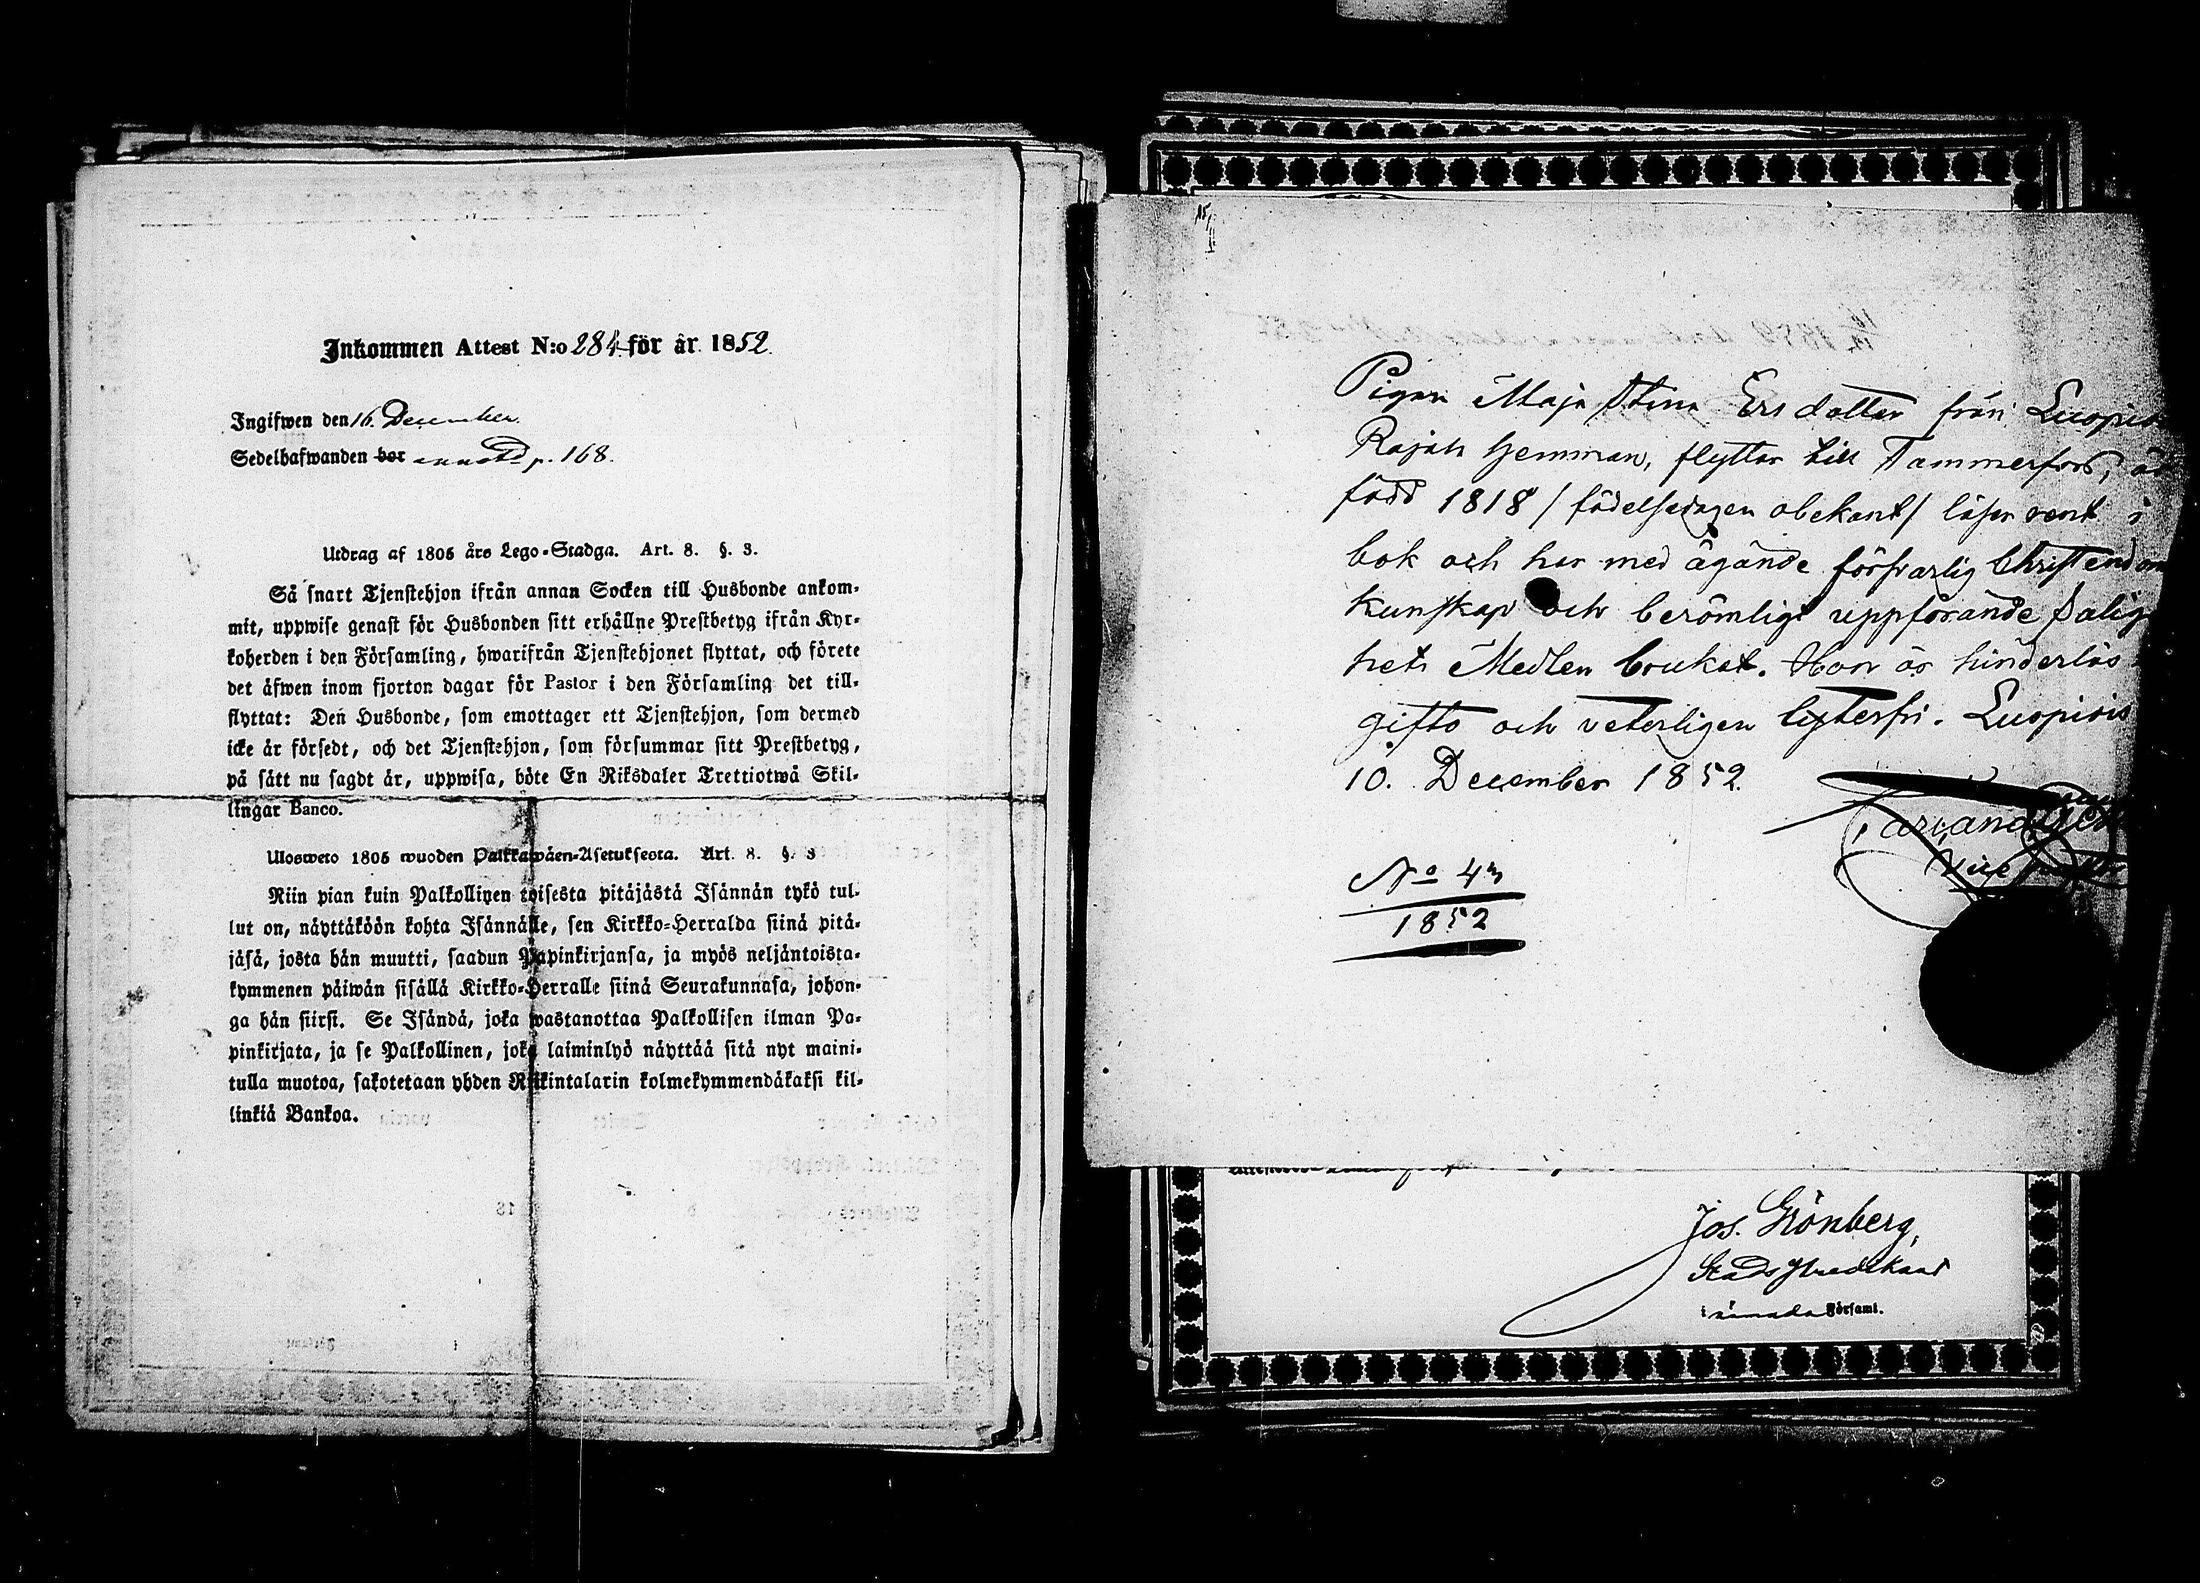 Inkommen Attest N:o 284 för år 1852.
Ingifwen den 16. December.
Sedelhafwanden bor annotd p. 168.
Utdrag af 1805 års Lego-Stadga. Art. 8. §. 3.
Så snart Tjenstehjon ifrån annan Socken till Husbonde ankom-
mit, uppwise genast för Husbonden sitt erhållne Prestbetyg ifrån Kyr-
koherden i den Församling, hwarifrån Tjenstehjonet flyttat, och förete
det äfwen inom fjorton dagar för Pastor i den Församling det till-
flyttat: Den Husbonde, som emottager ett Tjenstehjon, som dermed
icke är försedt, och det Tjenstehjon, som försummar sitt Prestbetyg,
på sätt nu sagdt är, uppwisa, böte En Riksdaler Trettiotwå Skil-
lingar Banco.
Ulosweto 1805 wuoden Palkkawäen-Asetuksesta. Art. 8. §. 3
Niin pian kuin Palkollinen toisesta pitäjästä Isännän tykö tul-
lut on, näyttäköön kohta Isännälle, sen Kirkko-Herralda siinä pitä-
jäsä, josta hän muutti, saadun Papinkirjansa, ja myös neljäntoista-
kymmenen päiwän sisällä Kirkko-Herralle siinä Seurakunnasa, johon-
ga hän siirsi. Se Isändä, joka wastanottaa Palkollisen ilman Pa-
pinkirjata, ja se Palkollinen, joka laiminlyö näyttää sitä nyt maini-
tulla muotoa, sakotetaan yhden Riikintalarin kolmekymmendäkaksi kil-
linkiä Bankoa.
Pigan Maja Stina Ersdotter från Luopiois
Rajala hemman, flyttar till Tammerfors, är
född 1818 / födelsedagen obekant / läser rent i
bok och har med ägande försvarlig Christendoms
kunskap och berömligt uppförande Salig
hets Medlen brukat. Hon är hinderlös
gifto och veterligen lyterfri. Luopiois
10. December 1852.
Vice
No 43
1852
Jos. Grönberg,
Stads Predikant
i nämnda Församl.